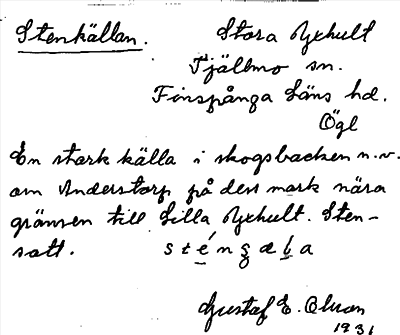 Stenkällan. Stora Yxhult
Tjällmo sn.
Finspånga Läns hd.
Ögl
En stark källa i skogsbacken n.v.
om Anderstorp på dess mark nära
gränsen till Lilla Yxhult. Sten-
satt. sténꞣæḷa
Gustaf E. Olson
1931